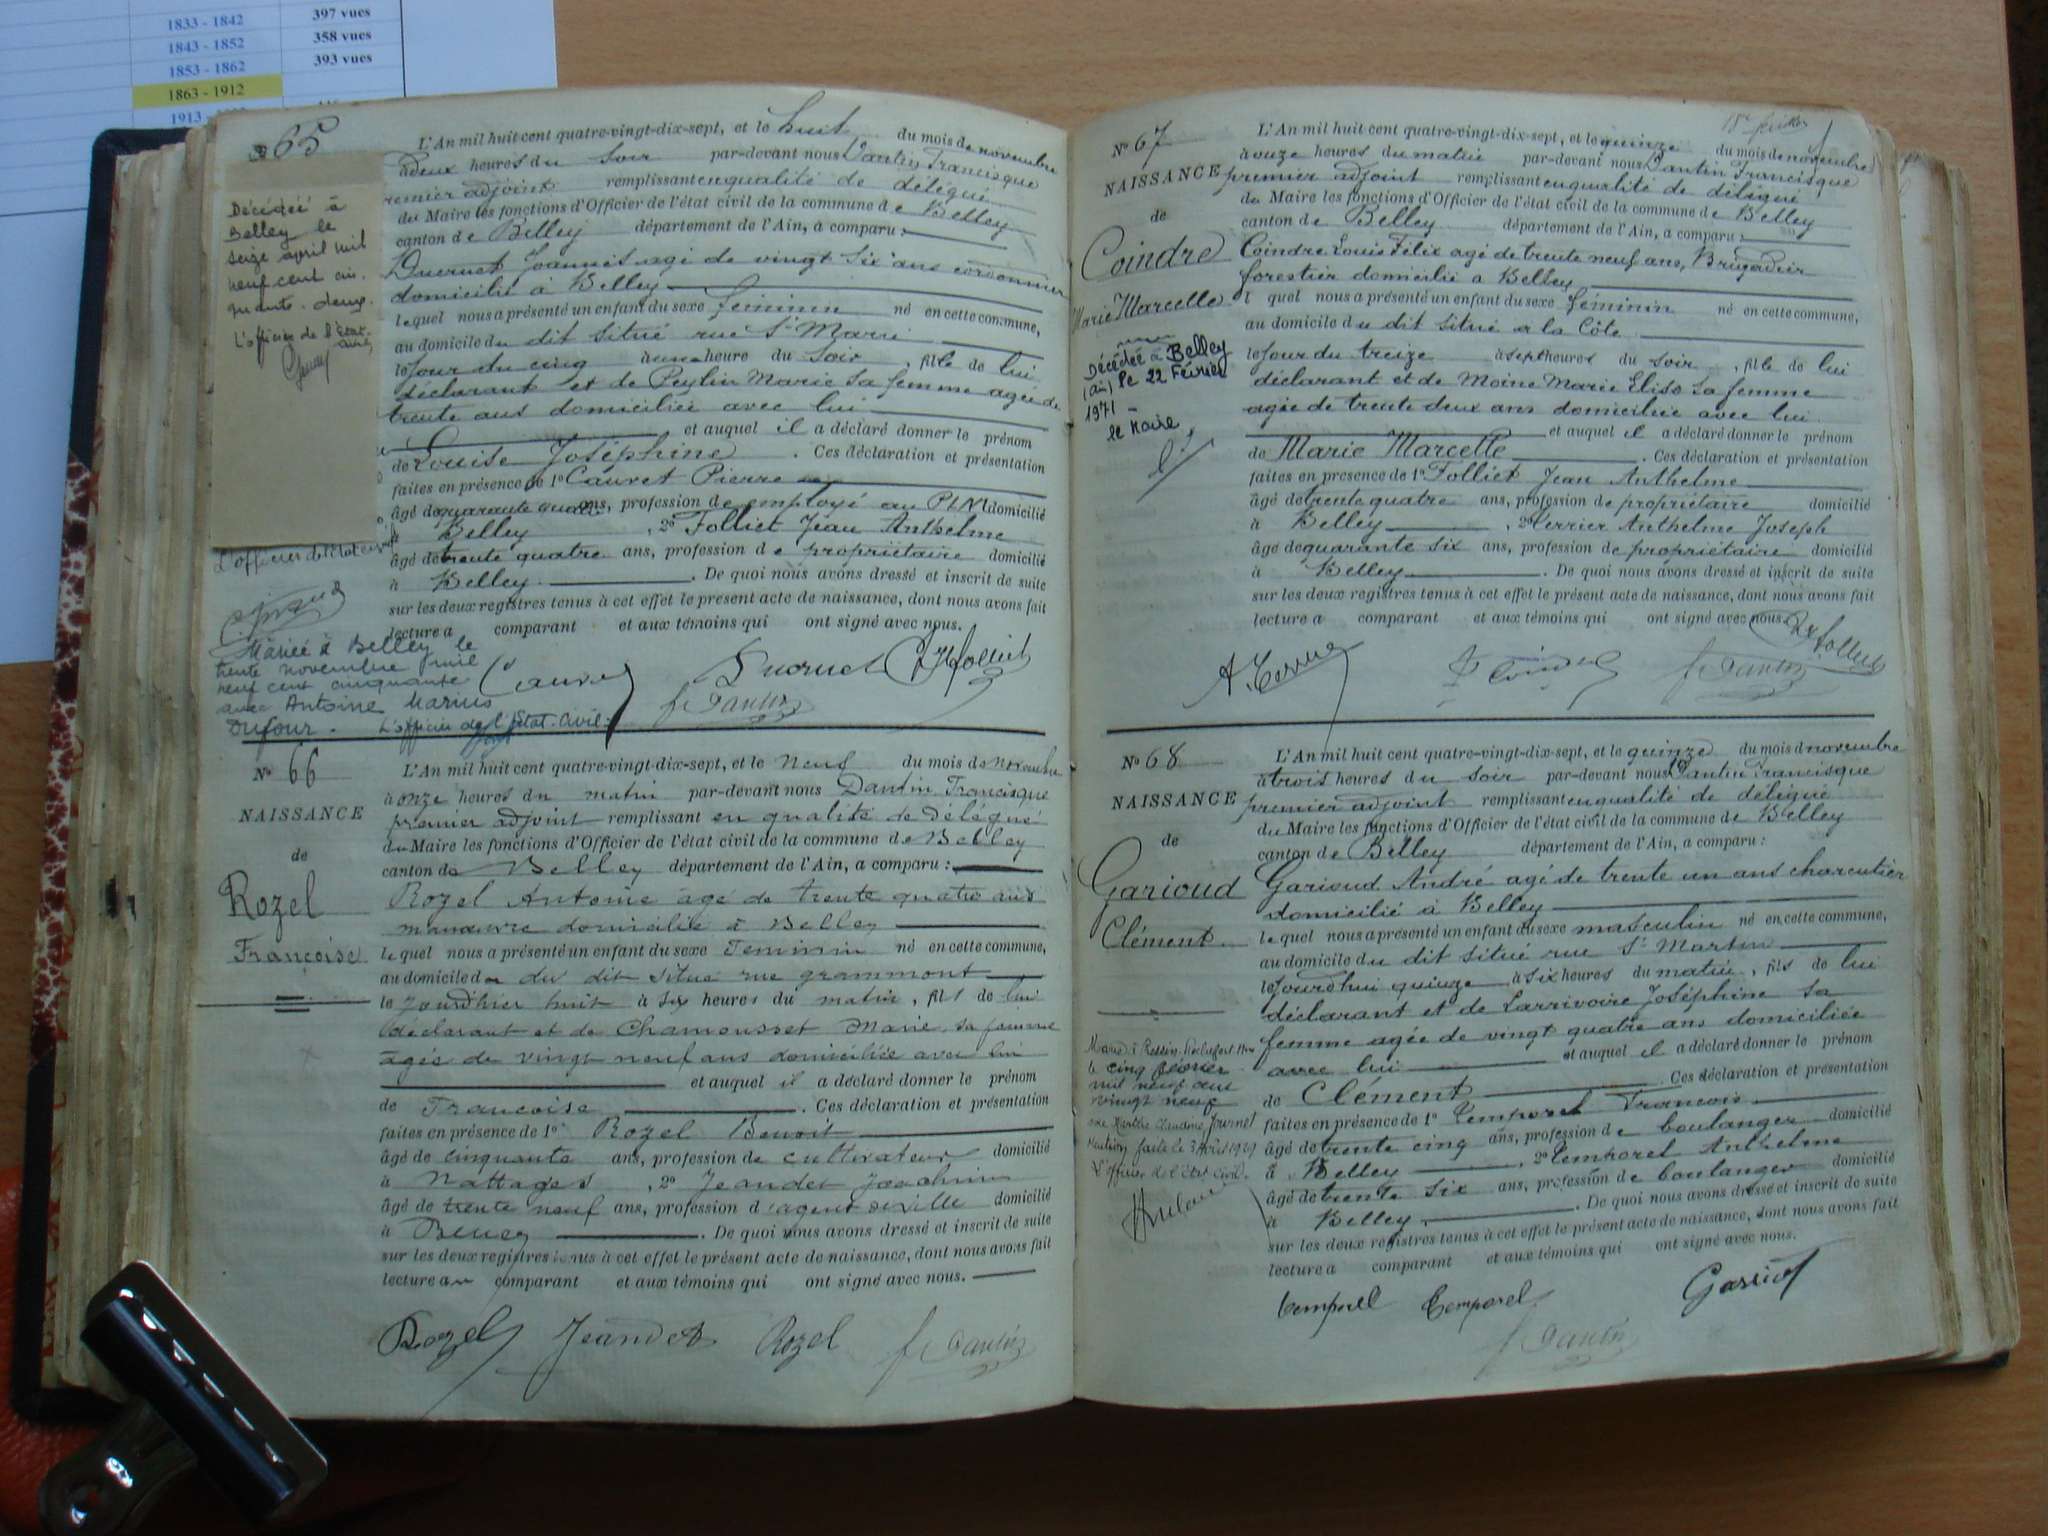 1833 - 1842 397 vues
1843 - 1852 358 vues
1853 - 1862 393 vues
1863 - 1912
1913 -
65
L'An mil huit cent quatre-vingt-dix-sept, et le huit du mois de novembre
à deux heures du soir par-devant nous Dantin Francisque
premier adjoint remplissant en qualité de délégué
du Maire les fonctions d'Officier de l'état civil de la commune de Belley
canton de Belley département de l'Ain, a comparu :
Ducruet Joannès agé de vingt six ans cordonnier
domicilié à Belley
lequel nous a présenté un enfant du sexe féminin né en cette commune,
au domicile du dit situé rue St Marie
le jour du cinq à une heure du soir, fille de lui
déclarant et de Peylin Marie sa femme agée de
trente ans domiciliée avec lui
et auquel il a déclaré donner le prénom
de Louise Joséphine. Ces déclaration et présentation
faites en présence de 1º Cauvet Pierre
âgé de quarante quatre ans, profession de employé au PLM domicilié
à Belley, 2º Folliet Jean Anthelme
âgé de trente quatre ans, profession de propriétaire domicilié
à Belley. De quoi nous avons dressé et inscrit de suite
sur les deux registres tenus à cet effet le présent acte de naissance, dont nous avons fait
lecture a comparant et aux témoins qui ont signé avec nous.
Décédée à
Belley le
seize april mil
neuf cent cin-
quante-deux.
L'officier de l'état
civil,
L'officier de l'état civil
Mariée à Belley le
trente novembre mil
neuf cent cinquante
avec Antoine Marius
Dufour. L'officier de l'Etat-Civil :
Cauvet Ducruet Folliet
f Dantin
Nº 66
NAISSANCE
de
Rozel
Françoise
L'An mil huit cent quatre-vingt-dix-sept, et le neuf du mois de novembre
à onze heures du matin par-devant nous Dantin Francisque
premier adjoint remplissant en qualité de délégué
du Maire les fonctions d'Officier de l'état civil de la commune de Belley
canton de Belley département de l'Ain, a comparu :
Rozel Antoine âgé de trente quatre ans
manœuvre domicilié à Belley
lequel nous a présenté un enfant du sexe féminin né en cette commune,
au domicile du dit situé rue grammont
le jourd'hier huit à six heures du matin, fils de lui
déclarant et de Chamousset Marie sa femme
agée de vingt neuf ans domiciliée avec lui
et auquel il a déclaré donner le prénom
de Francoise. Ces déclaration et présentation
faites en présence de 1º Rozel Benoit
âgé de cinquante ans, profession de cultivateur domicilié
à Nattages, 2º Jeandet Joachim
âgé de trente neuf ans, profession d'agent de ville domicilié
à Belley. De quoi nous avons dressé et inscrit de suite
sur les deux registres tenus à cet effet le présent acte de naissance, dont nous avons fait
lecture au comparant et aux témoins qui ont signé avec nous.
Rozel Jeandet Rozel f Dantin
Nº 67
NAISSANCE
de
Coindre
Marie Marcelle
Décédée à Belley
(ain) le 22 Février
1971 -
le Maire,
L'An mil huit cent quatre-vingt-dix-sept, et le quinze du mois de novembre
à onze heures du matin par-devant nous Dantin Francisque
premier adjoint remplissant en qualité de délégué
du Maire les fonctions d'Officier de l'état civil de la commune de Belley
canton de Belley département de l'Ain, a comparu :
Coindre Louis Félix agé de trente neuf ans, Brigadier
forestier domicilié à Belley
lequel nous a présenté un enfant du sexe féminin né en cette commune,
au domicile du dit situé a la Côte
le jour du treize à sept heures du soir, fille de lui
déclarant et de Moine Marie Elisa sa femme
agée de trente deux ans domiciliée avec lui
et auquel il a déclaré donner le prénom
de Marie Marcelle. Ces déclaration et présentation
faites en présence de 1º Folliet Jean Anthelme
âgé de trente quatre ans, profession de propriétaire domicilié
à Belley, 2º Terrier Anthelme Joseph
âgé de quarante six ans, profession de propriétaire domicilié
à Belley. De quoi nous avons dressé et inscrit de suite
sur les deux registres tenus à cet effet le présent acte de naissance, dont nous avons fait
lecture a comparant et aux témoins qui ont signé avec nous.
Folliet
Coindre f Dantin
Nº 68
NAISSANCE
de
Garioud
Clément
L'An mil huit cent quatre-vingt-dix-sept, et le quinze du mois d novembre
à trois heures du soir par-devant nous Dantin Francisque
premier adjoint remplissant en qualité de délégué
du Maire les fonctions d'Officier de l'état civil de la commune de Belley
canton de Belley département de l'Ain, a comparu :
Garioud André agé de trente un ans charcutier
domicilié à Belley
lequel nous a présenté un enfant du sexe masculin né en cette commune,
au domicile du dit situé rue St Martin
le jourd'hui quinze à six heures du matin, fils de lui
déclarant et de Larrivoire Joséphine sa
femme agée de vingt quatre ans domiciliée
avec lui et auquel il a déclaré donner le prénom
de Clément. Ces déclaration et présentation
faites en présence de 1º Temporel Francois
âgé de trente cinq ans, profession de boulanger domicilié
à Belley, 2º Temporel Anthelme
âgé de trente six ans, profession de boulanger domicilié
à Belley. De quoi nous avons dressé et inscrit de suite
sur les deux registres tenus à cet effet le présent acte de naissance, dont nous avons fait
lecture a comparant et aux témoins qui ont signé avec nous.
le cinq février
mil neuf cent
vingt neuf
L'officier de l'état civil.
Temporel Temporel Garioud
f Dantin